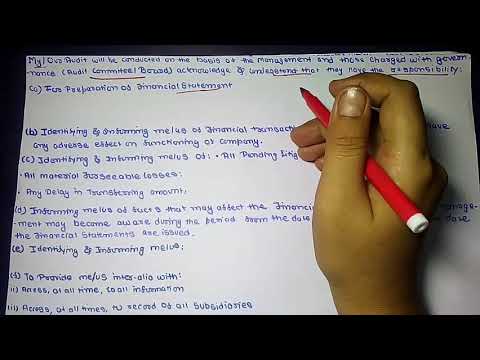 My/Our Audit will be conducted on the basis of the Management and those charged with gover-
nance (Audit Committee/Board) acknowledge & understand that they have the responsibility:
(a) For Preparation of Financial Statement
(b) Identifying & Informing me/us of Financial transact have
any adverse effect on functioning of company.
(c) Identifying & Informing me/us of: • All Pending Litig
• All material Forseeable losses:
• Any Delay in Transferring amount;
(d) Informing me/us of facts that may affect the Financial manage-
ment may become aware during the period from the date date
the Financial Statements are issued.
(e) Identifying & Informing me/us;
(f) To Provide me/us inter-alia with:
(i) Access, at all time, to all information
(ii) Access, at all times, to record of all Subsidiaries